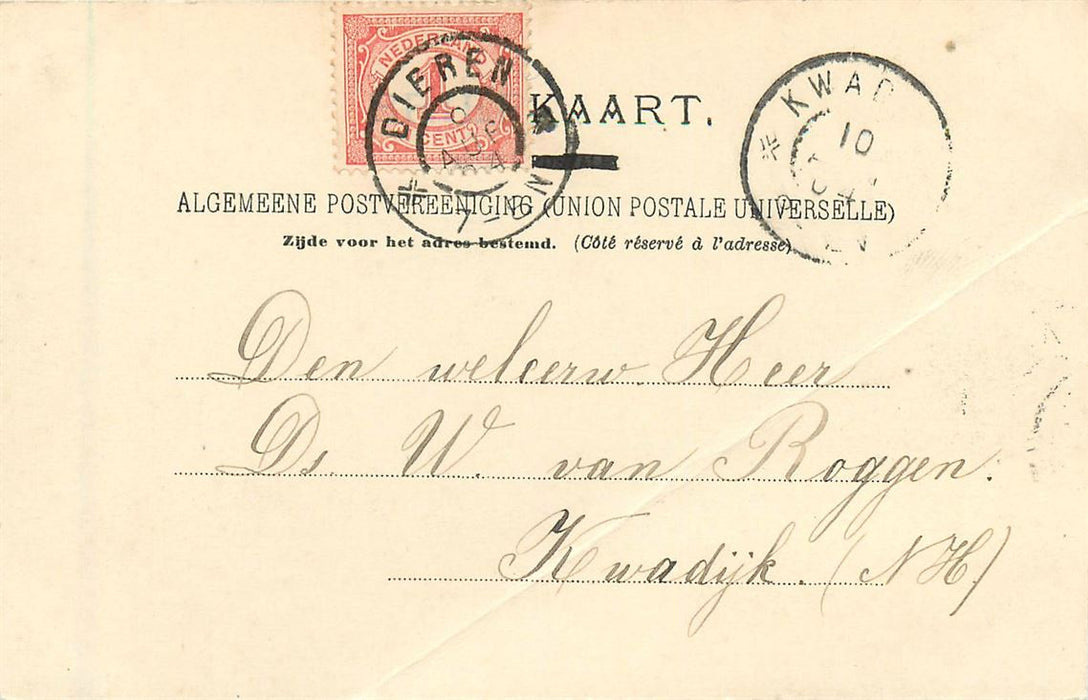 NEDERLAND
1
CENT
DIEREN
AUG
04
KAART.
KWAD
10
04
ALGEMEENE POSTVEREENIGING (UNION POSTALE UNIVERSELLE)
Zijde voor het adres bestemd. (Côté réservé à l'adresse)
Den weleerw. Heer
Ds. W. van Roggen.
Kwadijk. (NH.)